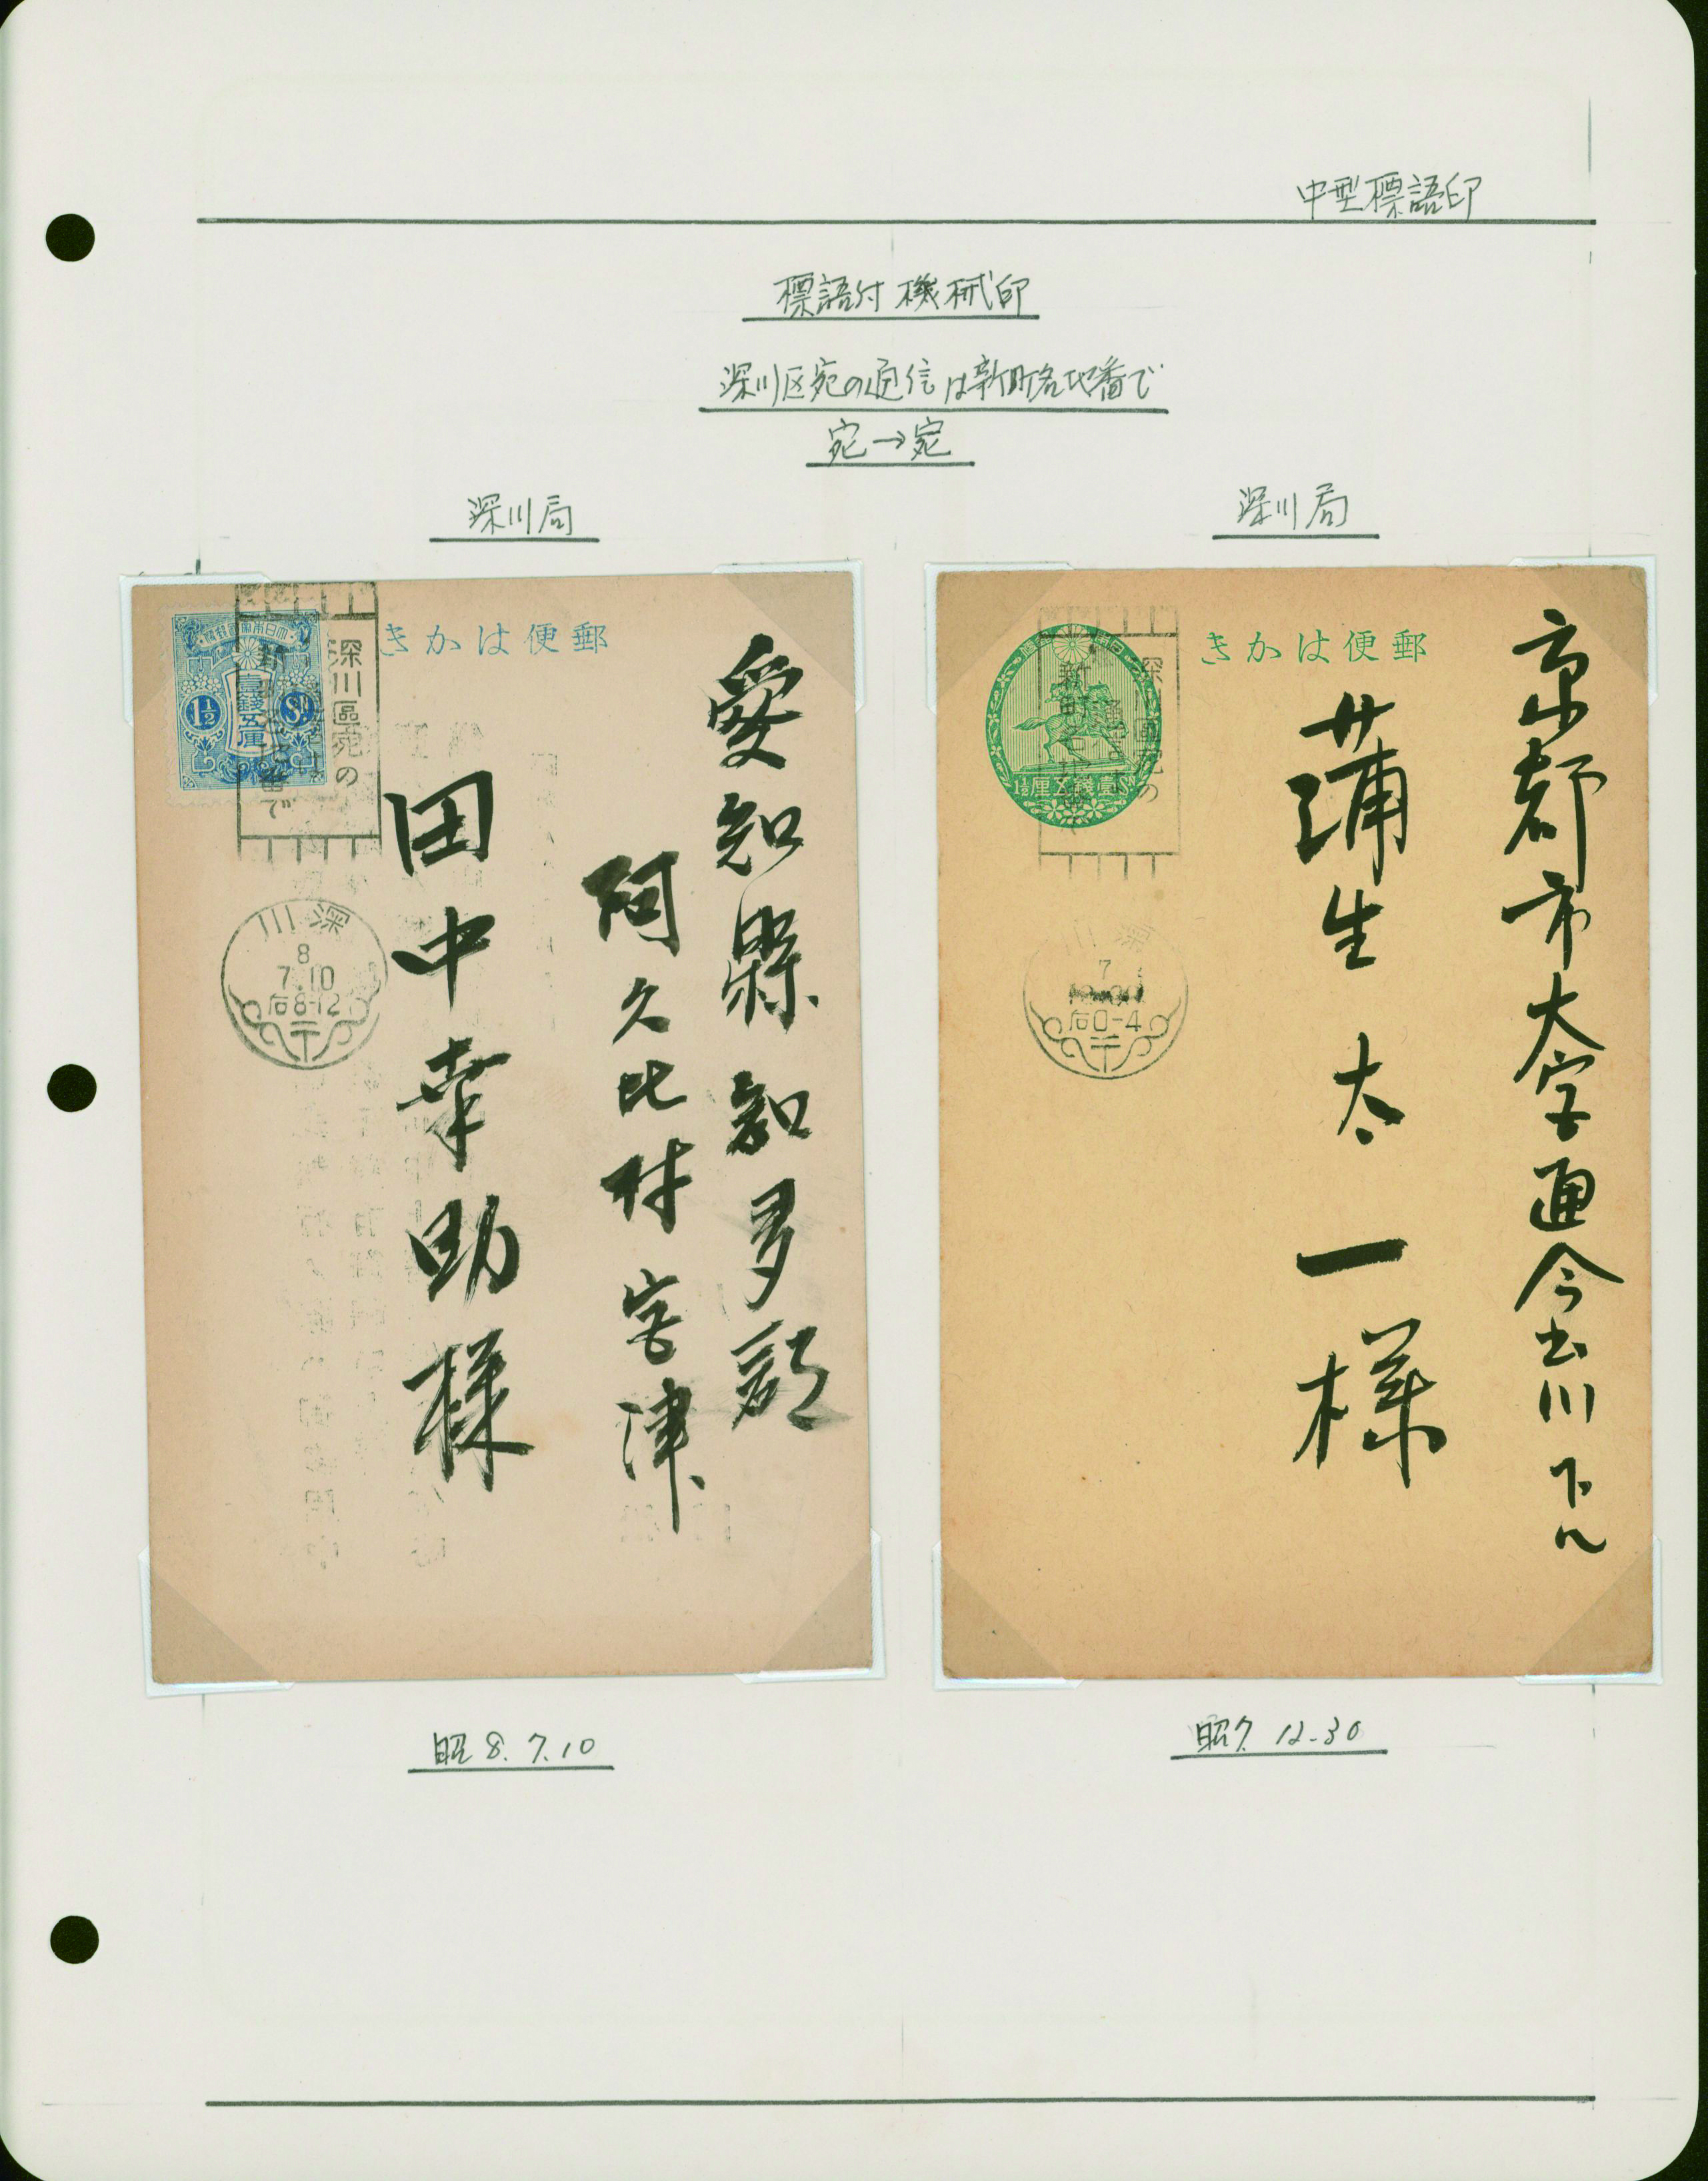 中型標語印
標語付機械印
深川区宛の通信は新町名地番で
宛→宛
深川局
深川局
大日本帝國郵便
壹錢五厘
1½
Sn
郵便はかき
深川區宛の
新町名地番で
深川
8
7.10
后8-12
愛知縣知多郡
阿久比村宮津
田中幸助様
壹錢五厘
郵便はかき
新町名地番で
深川
7
12.30
后0-4
京都市大宮通今出川下ル
蒲生太一様
昭8.7.10
昭7.12.30